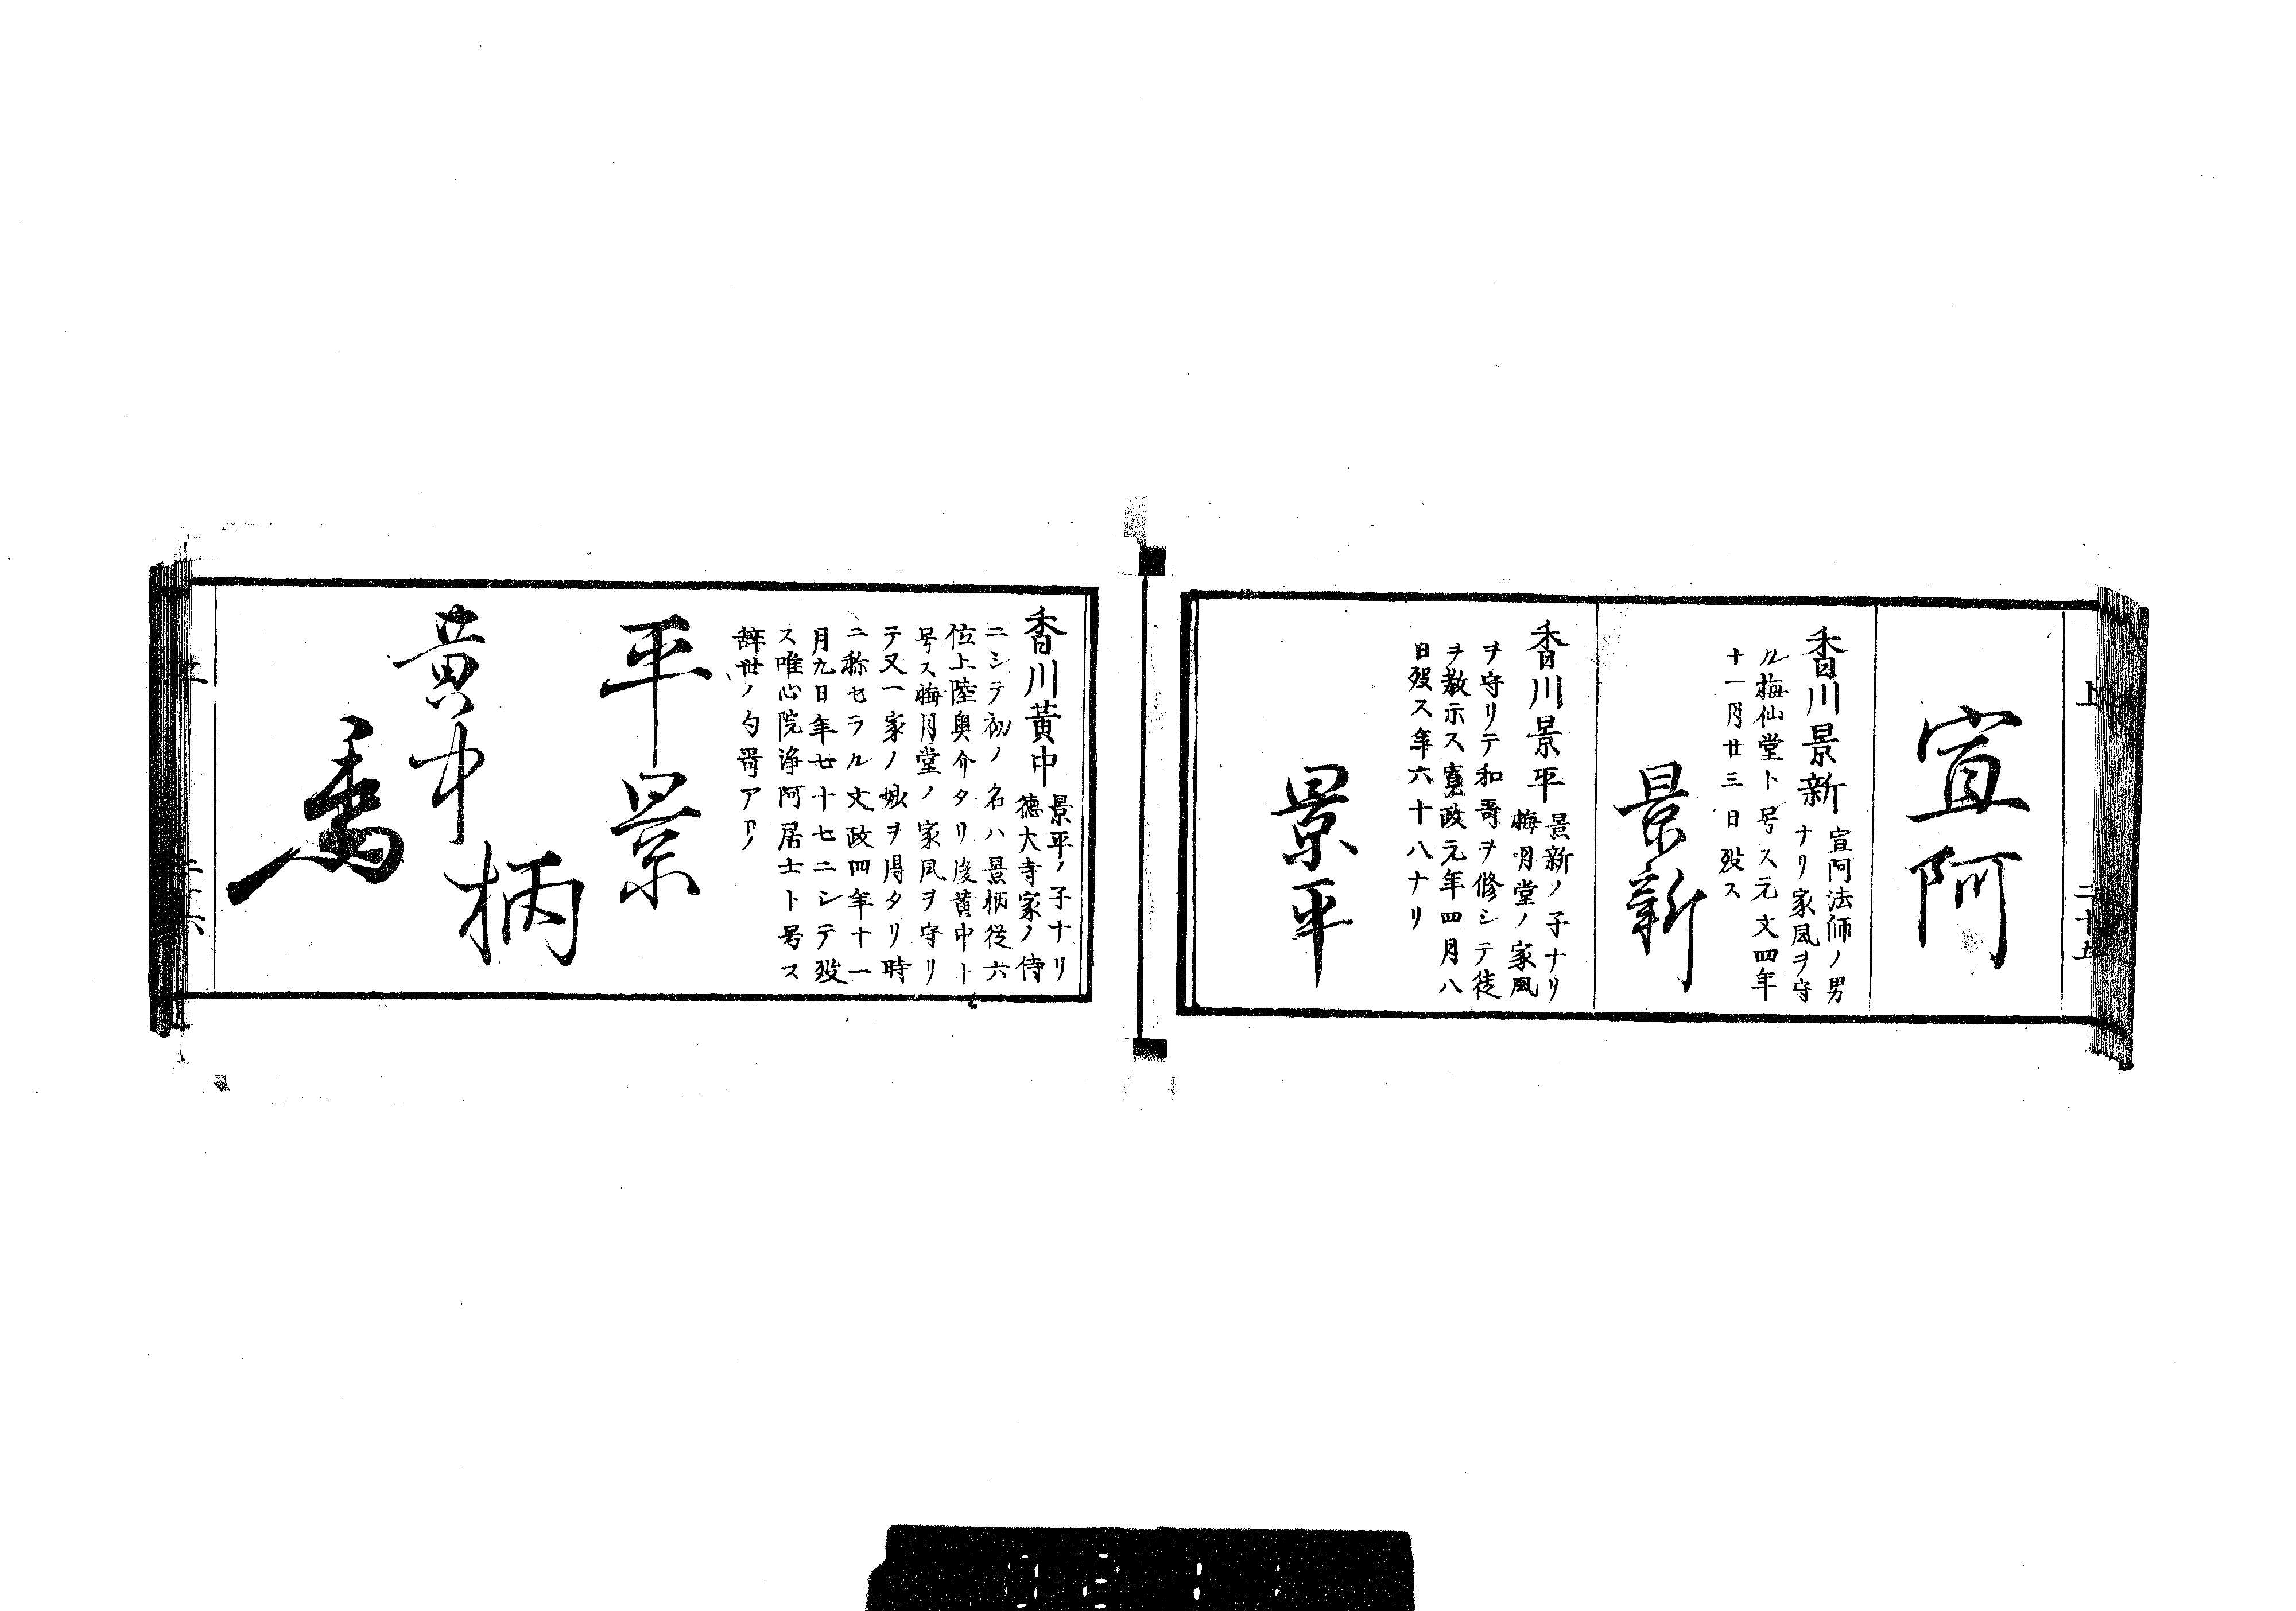 上
二十五
宣阿
香川景新
宣阿法師ノ男
ナリ家風ヲ守
ル梅仙堂ト号ス元文四年
十一月廿三日歿ス
景新
香川景平
景新ノ子ナリ
梅月堂ノ家風
ヲ守リテ和哥ヲ修シテ徒
ヲ教示ス寛政元年四月八
日歿ス年六十八ナリ
景平
香川黄中
景平ノ子ナリ
徳大寺家ノ侍
ニシテ初ノ名ハ景柄従六
位上陸奥介タリ後黄中ト
号ス梅月堂ノ家風ヲ守リ
テ又一家ノ妙ヲ得タリ時
ニ称セラル文政四年十一
月九日年七十七ニシテ歿
ス唯心院浄阿居士ト号ス
辞世ノ勺哥アリ
平景
柄
黄中